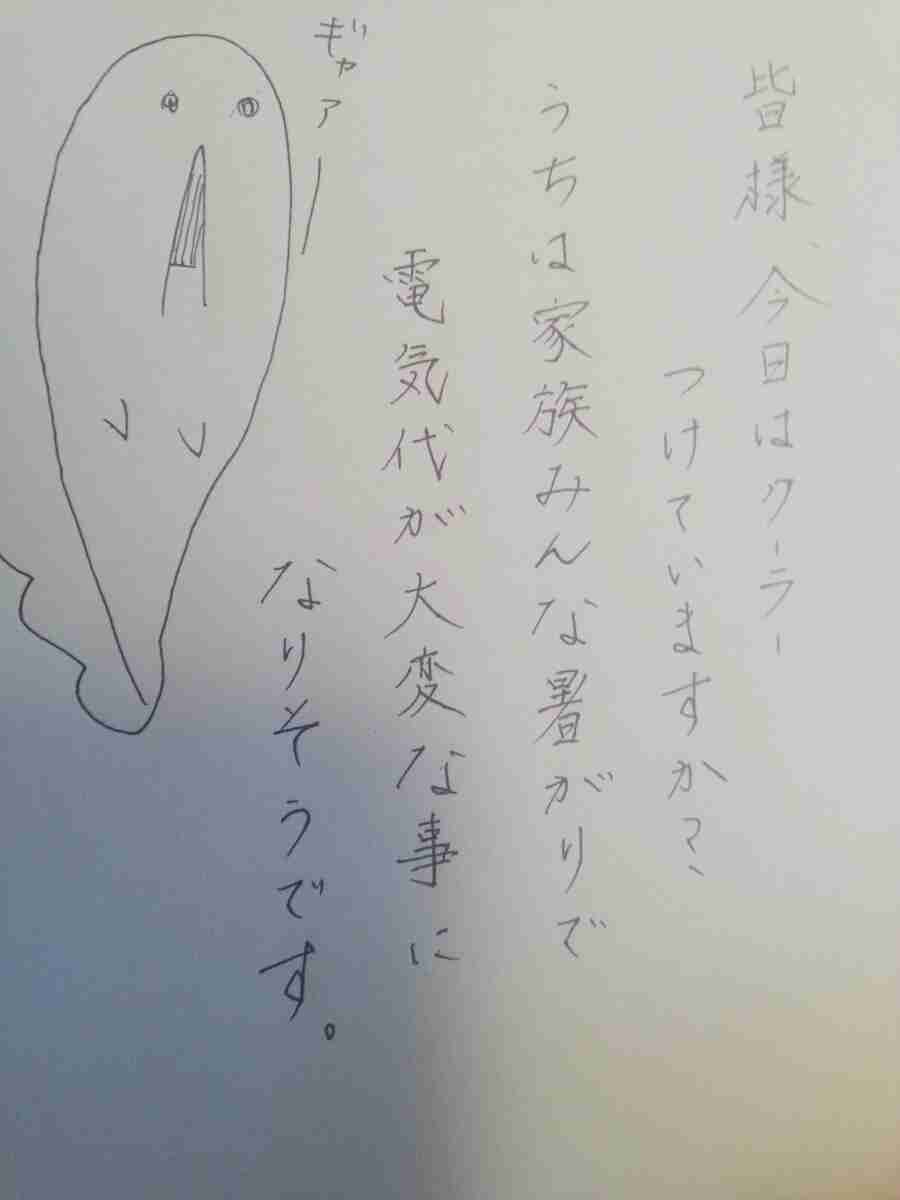 皆様、今日はクーラー
つけていますか?
うちは家族みんな暑がりで
電気代が大変な事に
なりそうです。
ギャアー